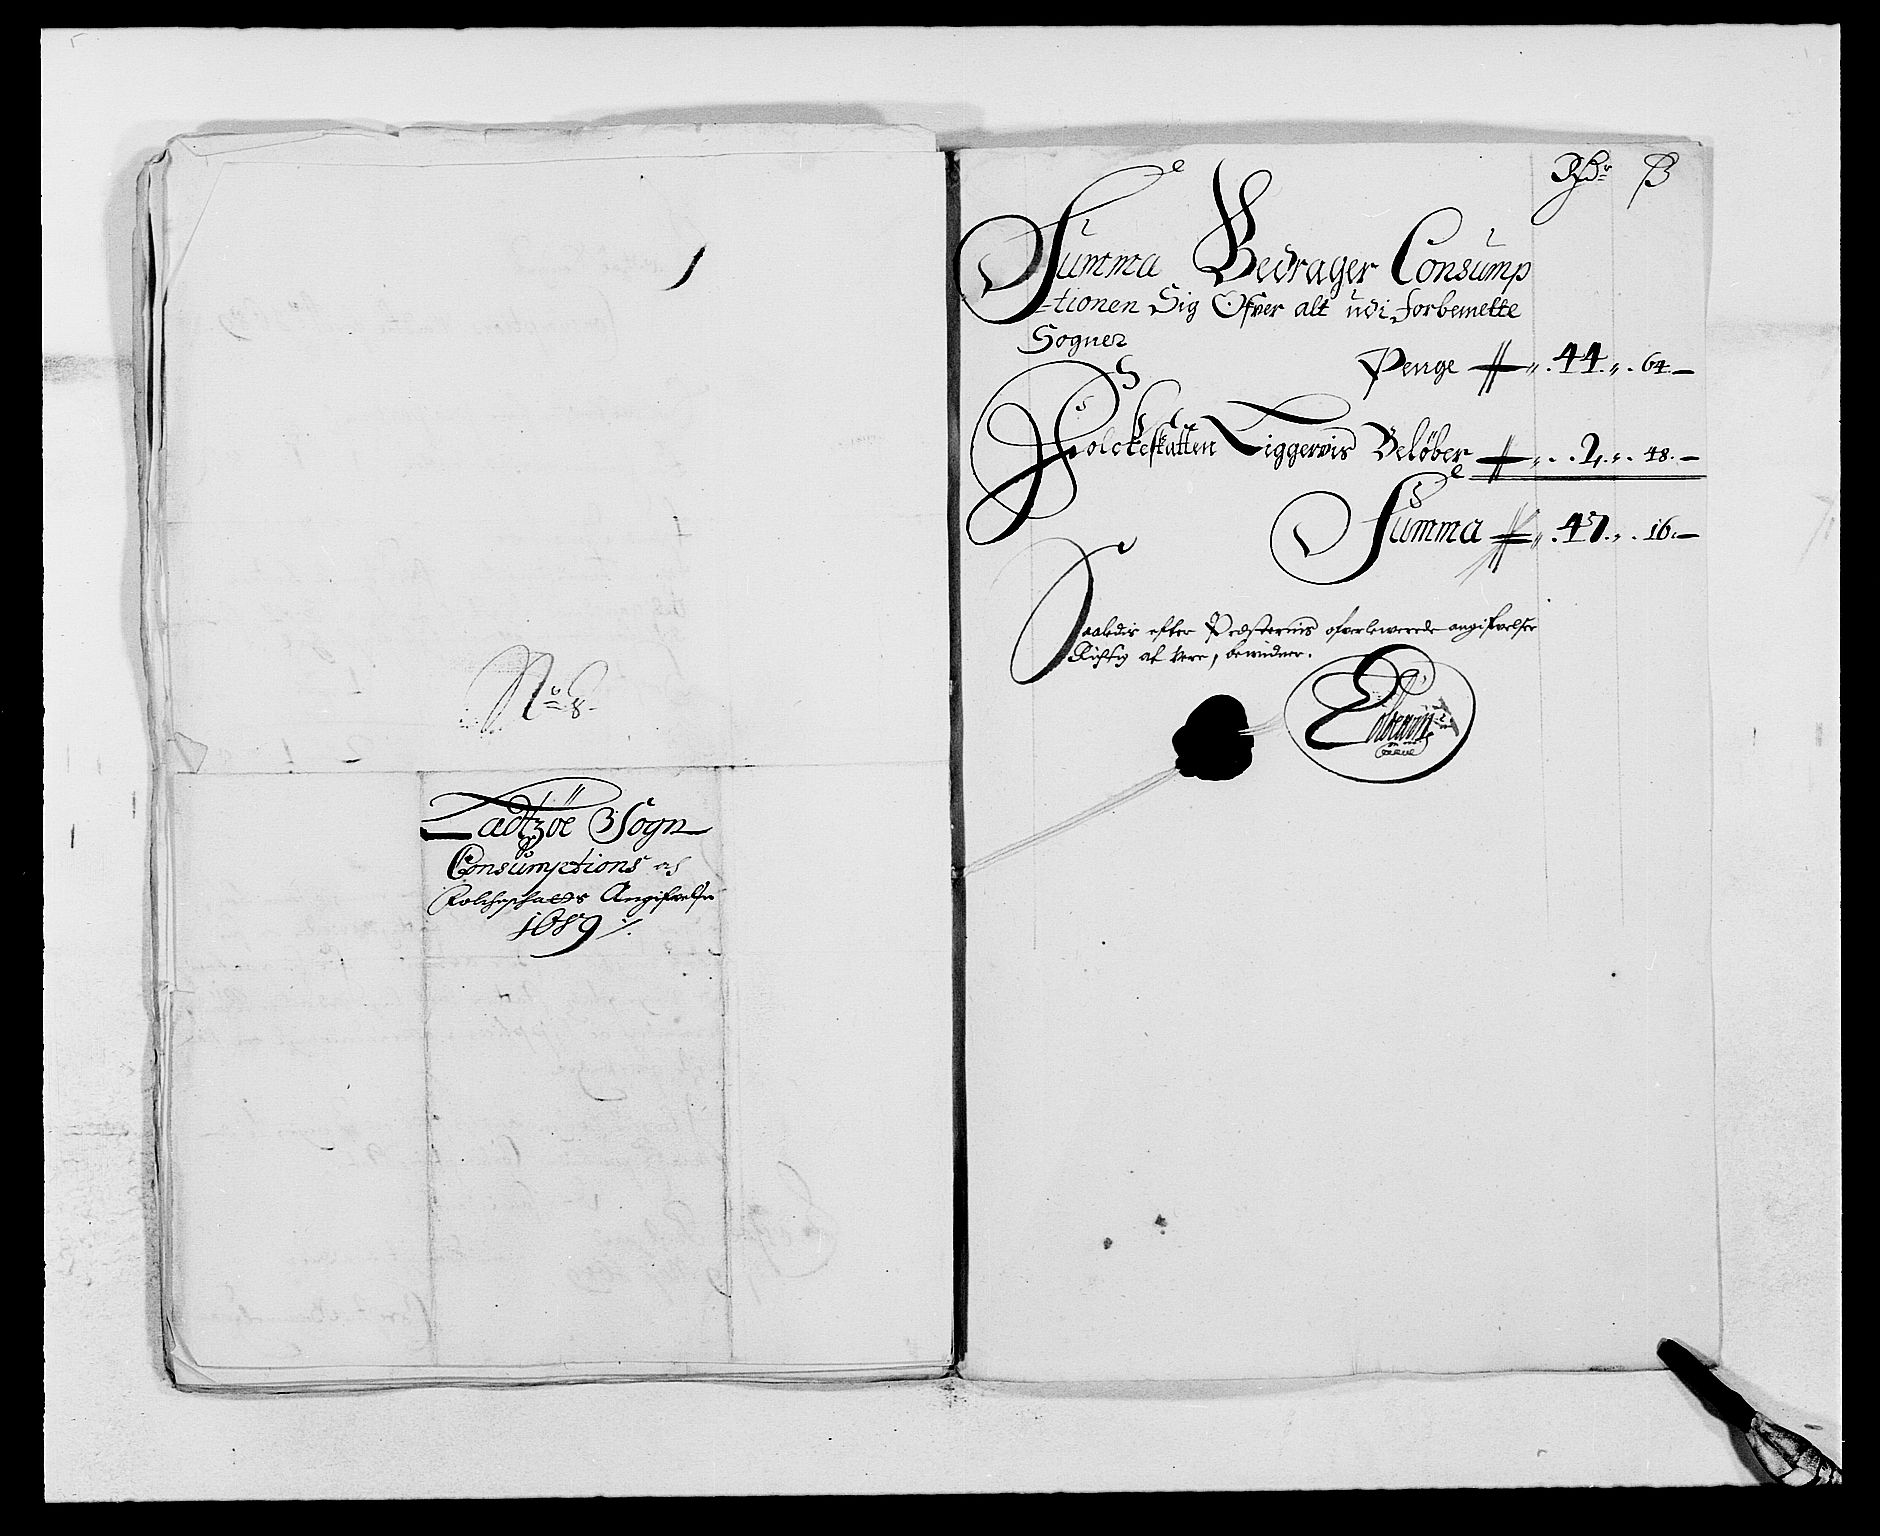 No 8.
Ladtzöe Sogn
Consumptions og
Folcheschatts Angifvelse
1689 ./.
Rdr ß
Summa Bedrager Consump
-tionen Sig Ofver alt udi forbemelte
Sogner
Penge - 44 - 64 -
Folckeskatten Liggervis Beløber - 2 - 48 -
Summa - 47 - 16 -
Saaledis efter Præsternis ofverleverede angifvelser
Rigtig at were, bewidner.